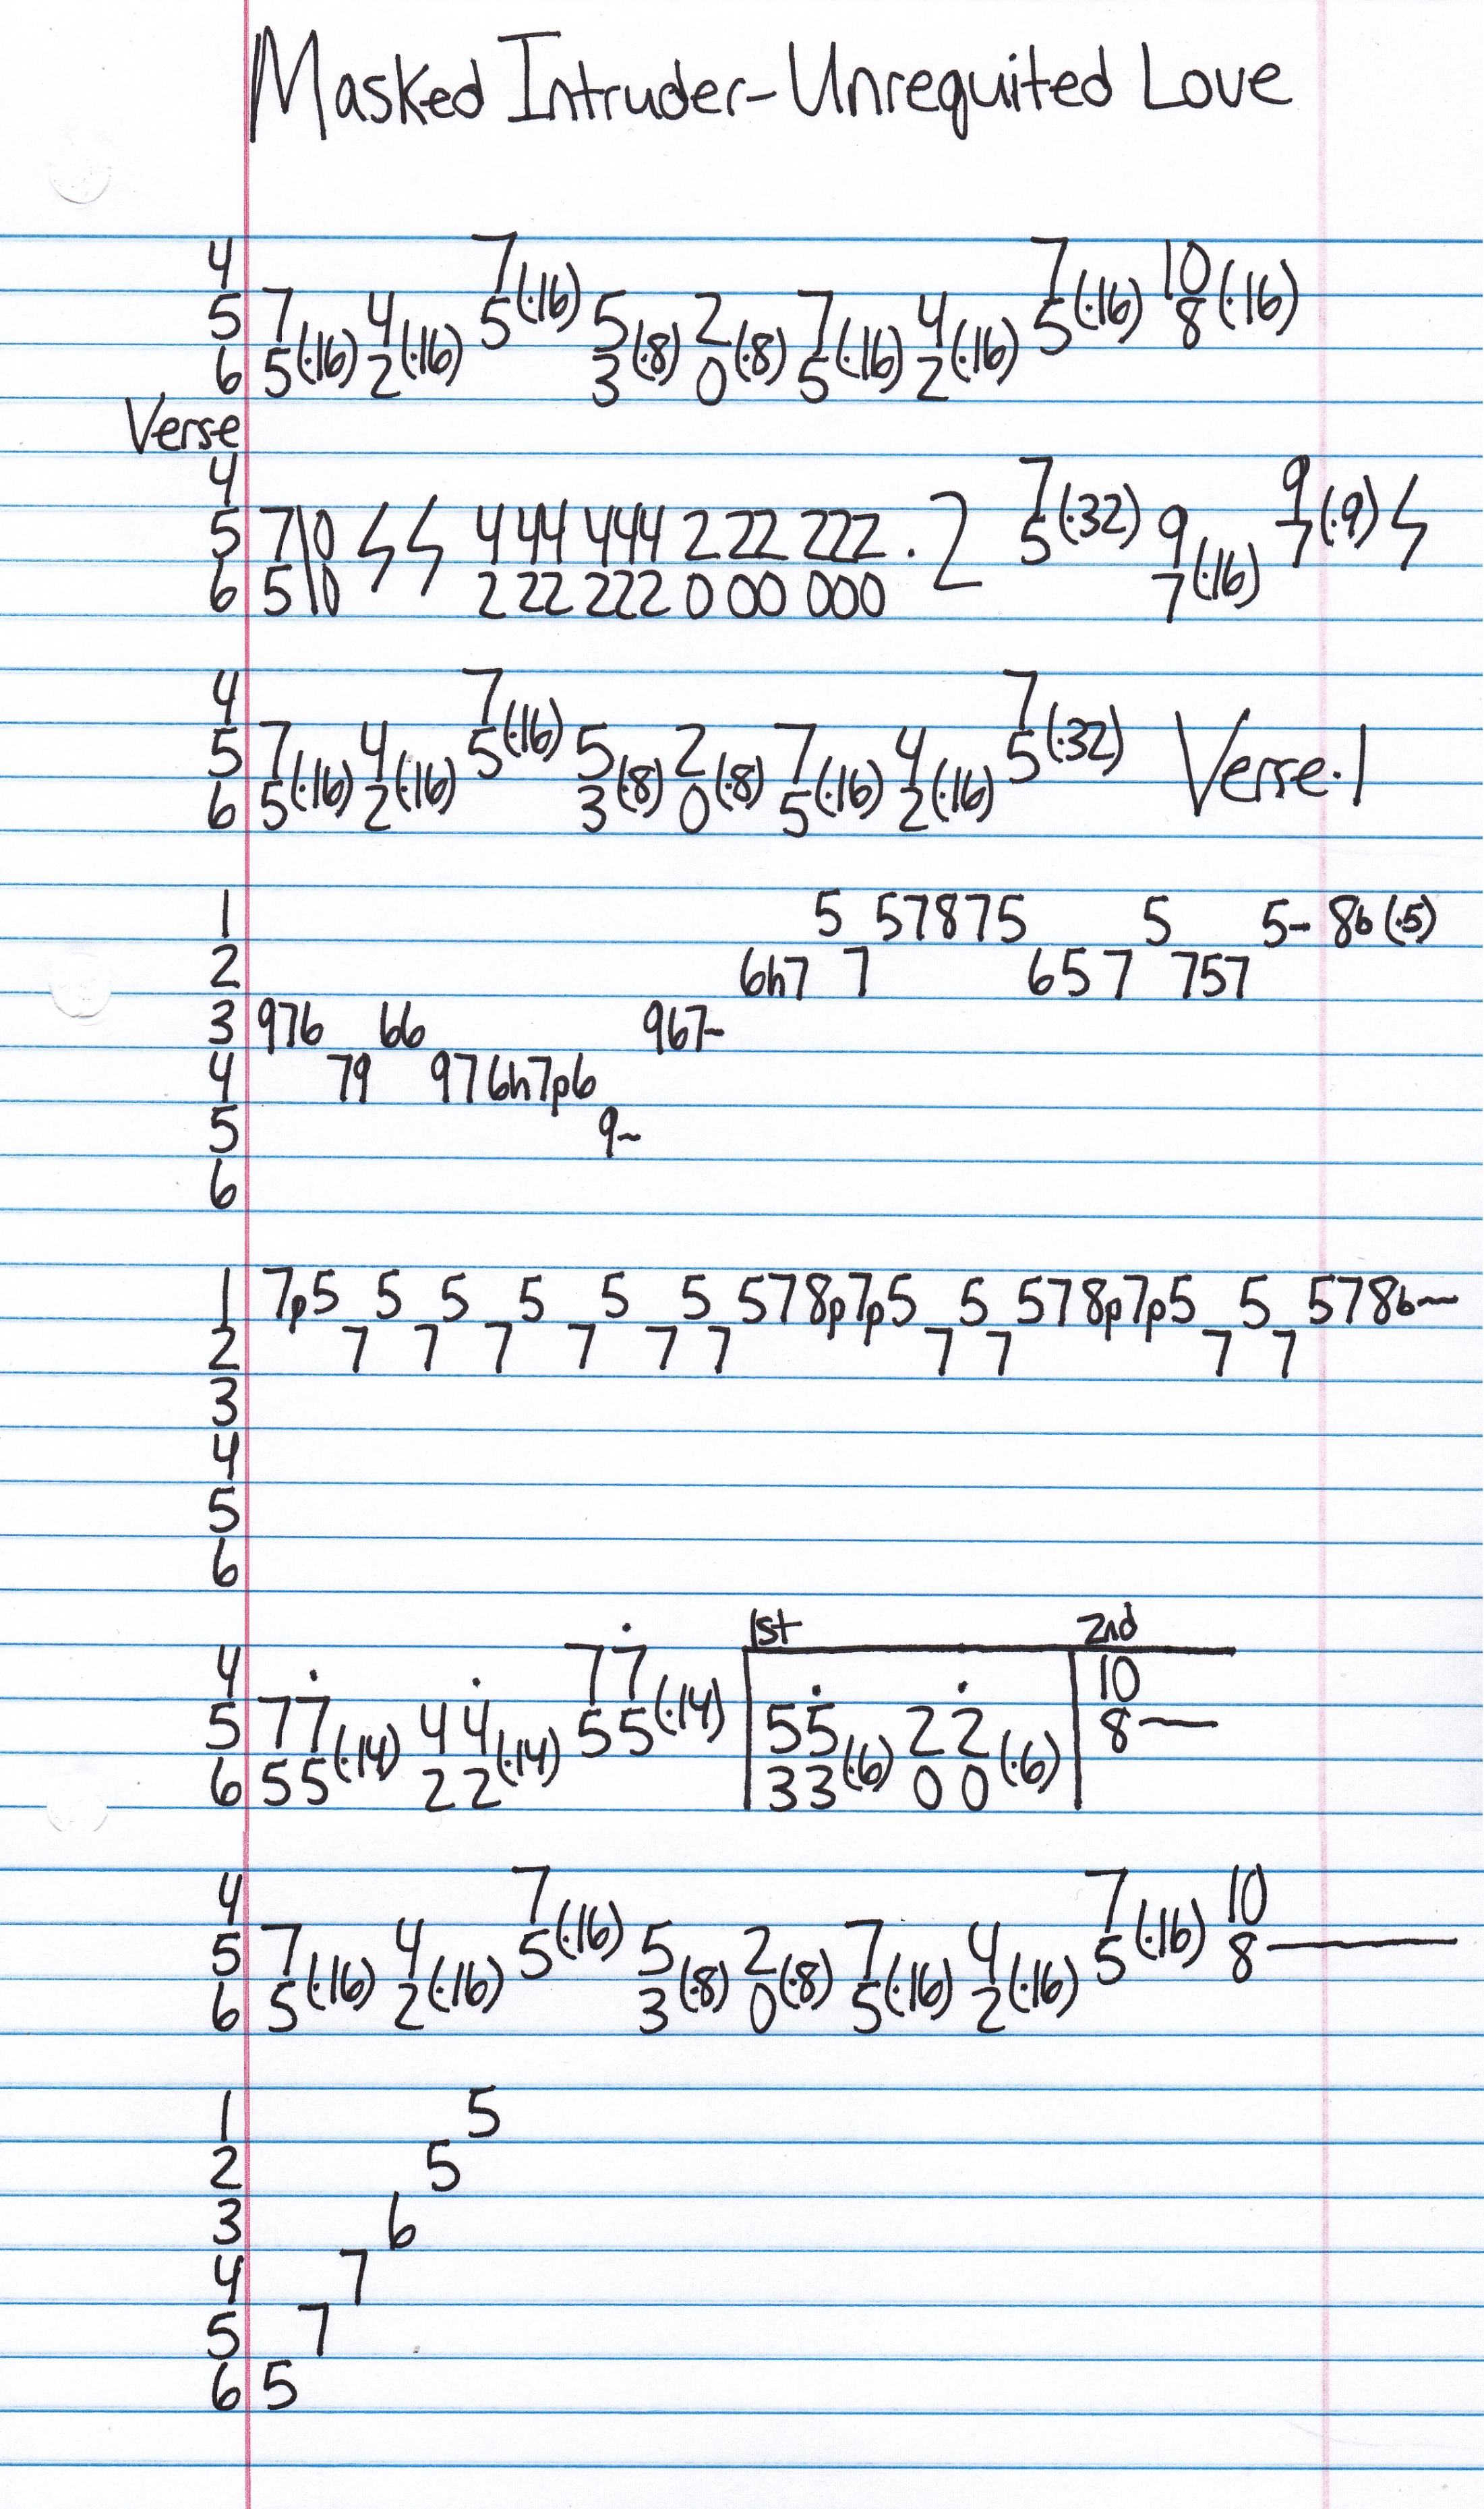 Masked Intruder-Unrequited Love
4 7(·16) 7(·16) 10(·16)
5 7(·16) 4(·16) 5 5(·8) 2(·8) 7(·16) 4(·16) 5 8
6 5 2 3 0 5 2
Verse
4 7(·32) 9(·9)
5 7\0 444 444 222 222 · 2 5 9(·16) 7
6 5\0 222 222 000 000 7
4 7(·16) 7(·32)
5 7(·16) 4(·16) 5 5(·8) 2(·8) 7(·16) 4(·16) 5 Verse·1
6 5 2 3 0 5 2
1 5 57875 5 5~ 8b(·5)
2 6h7 7 657 757
3 976 66 967~
4 79 976h7p6
5 9~
6
1 7p5 5 5 5 5 5 578p7p5 5 578p7p5 5 578b~
2 7 7 7 7 7 7 7 7 7 7
3
4
5
6
1st 2nd
4 77(·14) 10
5 77(·14) 44(·14) 55 55(·6) 22(·6) 8—
6 55 22 33 00
4 7(·16) 7(·16) 10
5 7(·16) 4(·16) 5 5(·8) 2(·8) 7(·16) 4(·16) 5 8—
6 5 2 3 0 5 2
1 5
2 5
3 6
4 7
5 7
6 5